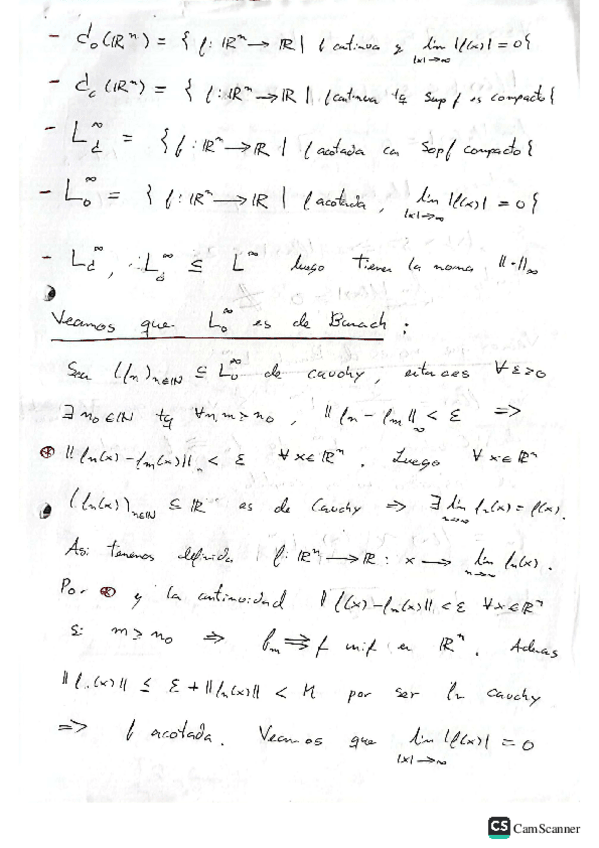 - C₀(ℝⁿ) = { f: ℝⁿ → ℝ | f continua y lim_{|x|→∞} |f(x)| = 0 }
- C_c(ℝⁿ) = { f: ℝⁿ → ℝ | f continua tq Sup f es compacto }
- L_c^∞ = { f: ℝⁿ → ℝ | f acotada con Sop f compacto }
- L₀^∞ = { f: ℝⁿ → ℝ | f acotada, lim_{|x|→∞} |f(x)| = 0 }
- L_c^∞, L₀^∞ ⊆ L^∞ luego tienen la norma ||·||_∞
Veamos que L₀^∞ es de Banach:
Sea (fₙ)_{n∈ℕ} ⊆ L₀^∞ de cauchy, entonces ∀ε>0
∃n₀∈ℕ tq ∀n,m ≥ n₀, ||fₙ - f_m||_∞ < ε =>
⊛ ||fₙ(x) - f_m(x)|| < ε ∀x∈ℝⁿ. Luego ∀x∈ℝⁿ
(fₙ(x))_{n∈ℕ} ⊆ ℝ es de Cauchy => ∃ lim_{n→∞} fₙ(x) = f(x).
Asi tenemos definida f: ℝⁿ → ℝ : x → lim_{n→∞} fₙ(x).
Por ⊛ y la continuidad ||f(x) - fₙ(x)|| < ε ∀x∈ℝⁿ
Si m ≥ n₀ => f_m ⇉ f unif en ℝⁿ. Ademas
||f(x)|| ≤ ε + ||fₙ(x)|| < M por ser fₙ cauchy
=> f acotada. Veamos que lim_{|x|→∞} |f(x)| = 0
CS CamScanner